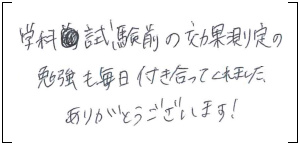 学科試験前の効果測定の
勉強も毎日付き合ってくれました、
ありがとうございます!